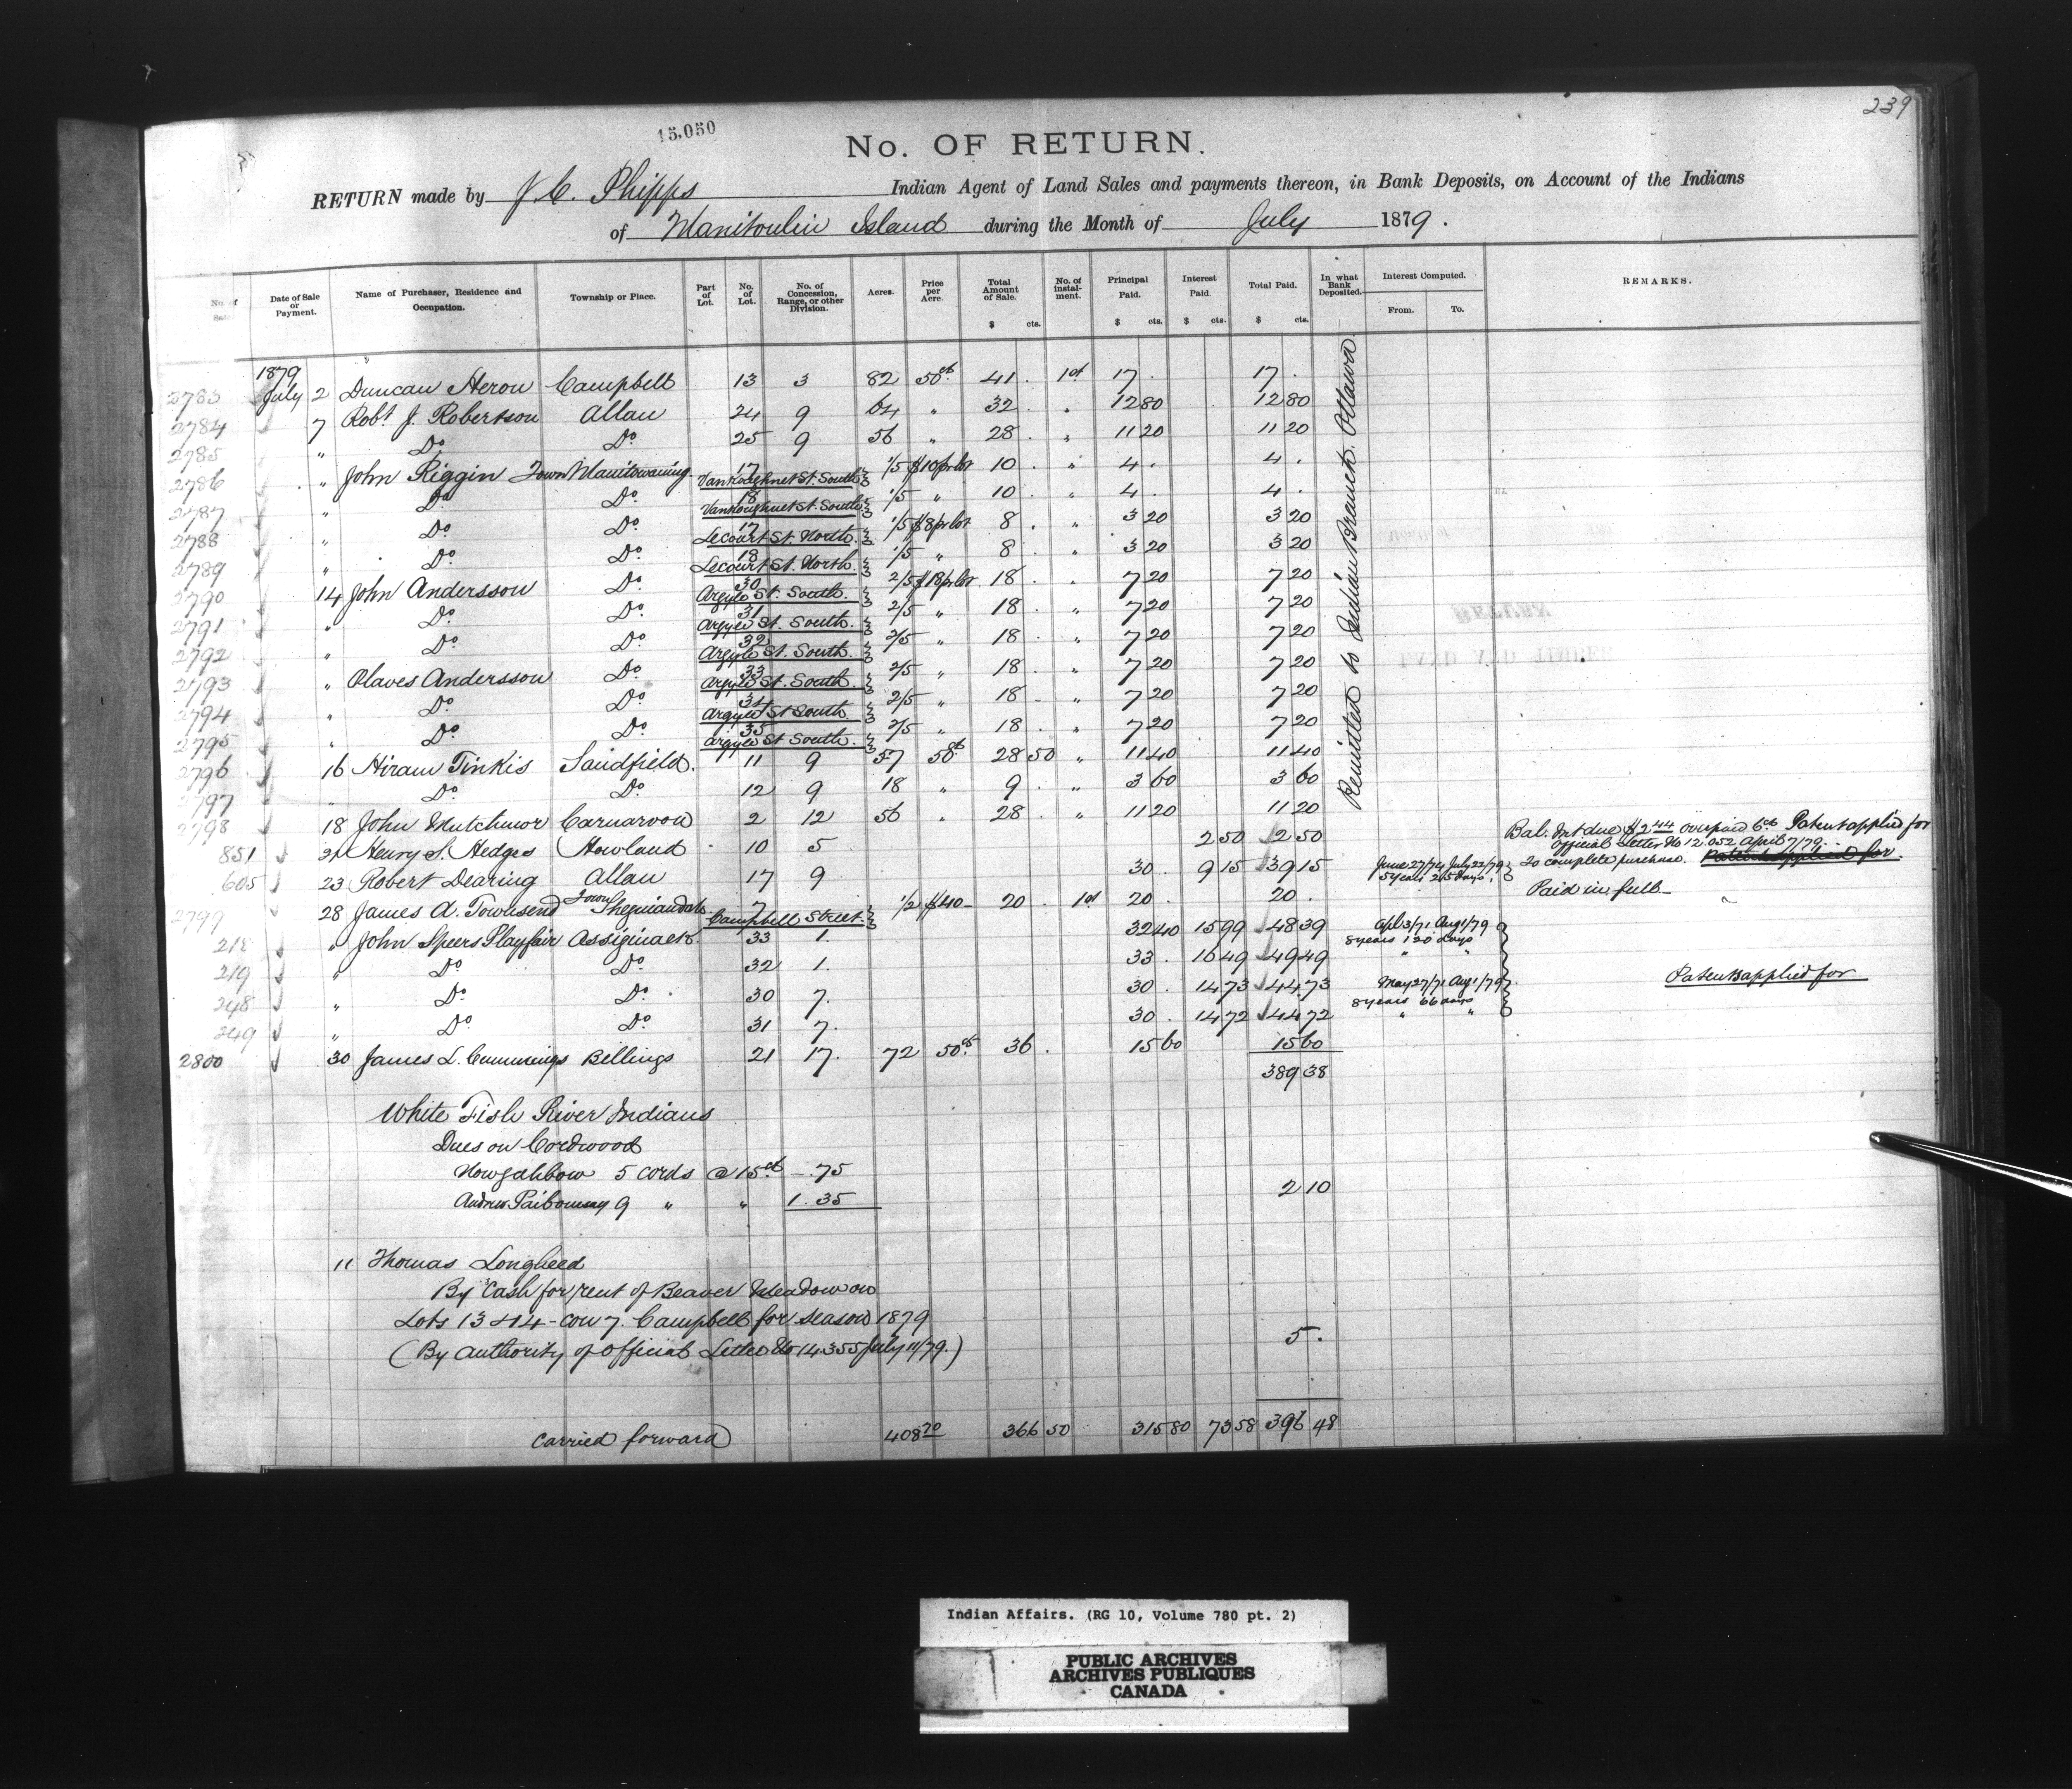 239
15,050
No. OF RETURN.
RETURN made by J. C. Phipps Indian Agent of Land Sales and payments thereon, in Bank Deposits, on Account of the Indians
of Manitoulin Island during the Month of July 1879.
No. of Sale. Date of Sale or Payment. Name of Purchaser, Residence and Occupation. Township or Place. Part of Lot. No. of Lot. No. of Concession, Range, or other Division. Acres. Price per Acre. Total Amount of Sale. $ cts. No. of Instalment. Principal Paid. $ cts. Interest Paid. $ cts. Total Paid. $ cts. In what Bank Deposited. Interest Computed. From. To. REMARKS.
1879
2783 July 2 Duncan Heron Campbell 13 3 82 50ct 41 . 1st 17 . 17 .
2784 7 Robt J. Robertson Allan 24 9 64 " 32 . " 12 80 12 80
2785 " Do Do 25 9 56 " 28 . " 11 20 11 20
2786 " John Riggin Town Manitowaning 17 Vankoughnet St. South 1/5 $10 pr lot 10 . " 4 . 4 .
2787 " Do Do 18 Vankoughnet St. South 1/5 " 10 . " 4 . 4 .
2788 " Do Do 17 Lecourt St. North 1/5 $8 pr lot 8 . " 3 20 3 20
2789 " Do Do 18 Lecourt St. North 1/5 " 8 . " 3 20 3 20
2790 14 John Andersson Do 30 Argyle St. South 2/5 $18 pr lot 18 . " 7 20 7 20
2791 " Do Do 31 Argyle St. South 2/5 " 18 . " 7 20 7 20
2792 " Do Do 32 Argyle St. South 2/5 " 18 . " 7 20 7 20
2793 " Olaves Andersson Do 33 Argyle St. South 2/5 " 18 . " 7 20 7 20
2794 " Do Do 34 Argyle St South 2/5 " 18 - " 7 20 7 20
2795 " Do Do 35 Argyle St South 2/5 " 18 . " 7 20 7 20
2796 16 Hiram Tinkis Sandfield 11 9 57 50ct 28 50 " 11 40 11 40
2797 " Do Do 12 9 18 " 9 . " 3 60 3 60
2798 18 John Mutchmor Carnarvon 2 12 56 " 28 . " 11 20 11 20
851 21 Henry S. Hedges Howland 10 5 2 50 2 50 Bal. Int due $2.44 overpaid 6ct Patent applied for
official Letter No 12.052 April 7/79.
605 23 Robert Dearing Allan 17 9 30 . 9 15 39 15 June 27/74 July 22/79 5 years 25 days To complete purchase. Patent applied for.
2799 28 James A. Townsend Town Sheguiandah 7 Campbell Street 1/2 $40 - 20 . 1st 20 . 20 . Paid in full -
218 " John Speers Playfair Assiginack 33 1. 32 40 15 99 48 39 Apl 3/71 Aug 1/79 8 years 120 days
219 " Do Do 32 1. 33 . 16 49 49 49 " "
248 " Do Do 30 7. 30 . 14 73 44 73 May 27/71 Aug 1/79 8 years 66 days Patents applied for
249 " Do Do 31 7. 30 . 14 72 44 72 " "
2800 30 James L. Cummings Billings 21 17. 72 50ct 36 . 15 60 15 60
Remitted to Indian Branch. Ottawa
389 38
White Fish River Indians
Dues on Cordwood
Nowgahbow 5 cords @ 15ct - .75
Andrew Paibomsay 9 " " 1.35 2 10
11 Thomas Longheed
By Cash for rent of Beaver Meadow on
Lots 13 & 14 - con 7. Campbell for season 1879
(By authority of official Letter No 14355 July 11/79.) 5 .
Carried forward 408 70 366 50 315 80 73 58 396 48
Indian Affairs. (RG 10, Volume 780 pt. 2)
PUBLIC ARCHIVES
ARCHIVES PUBLIQUES
CANADA